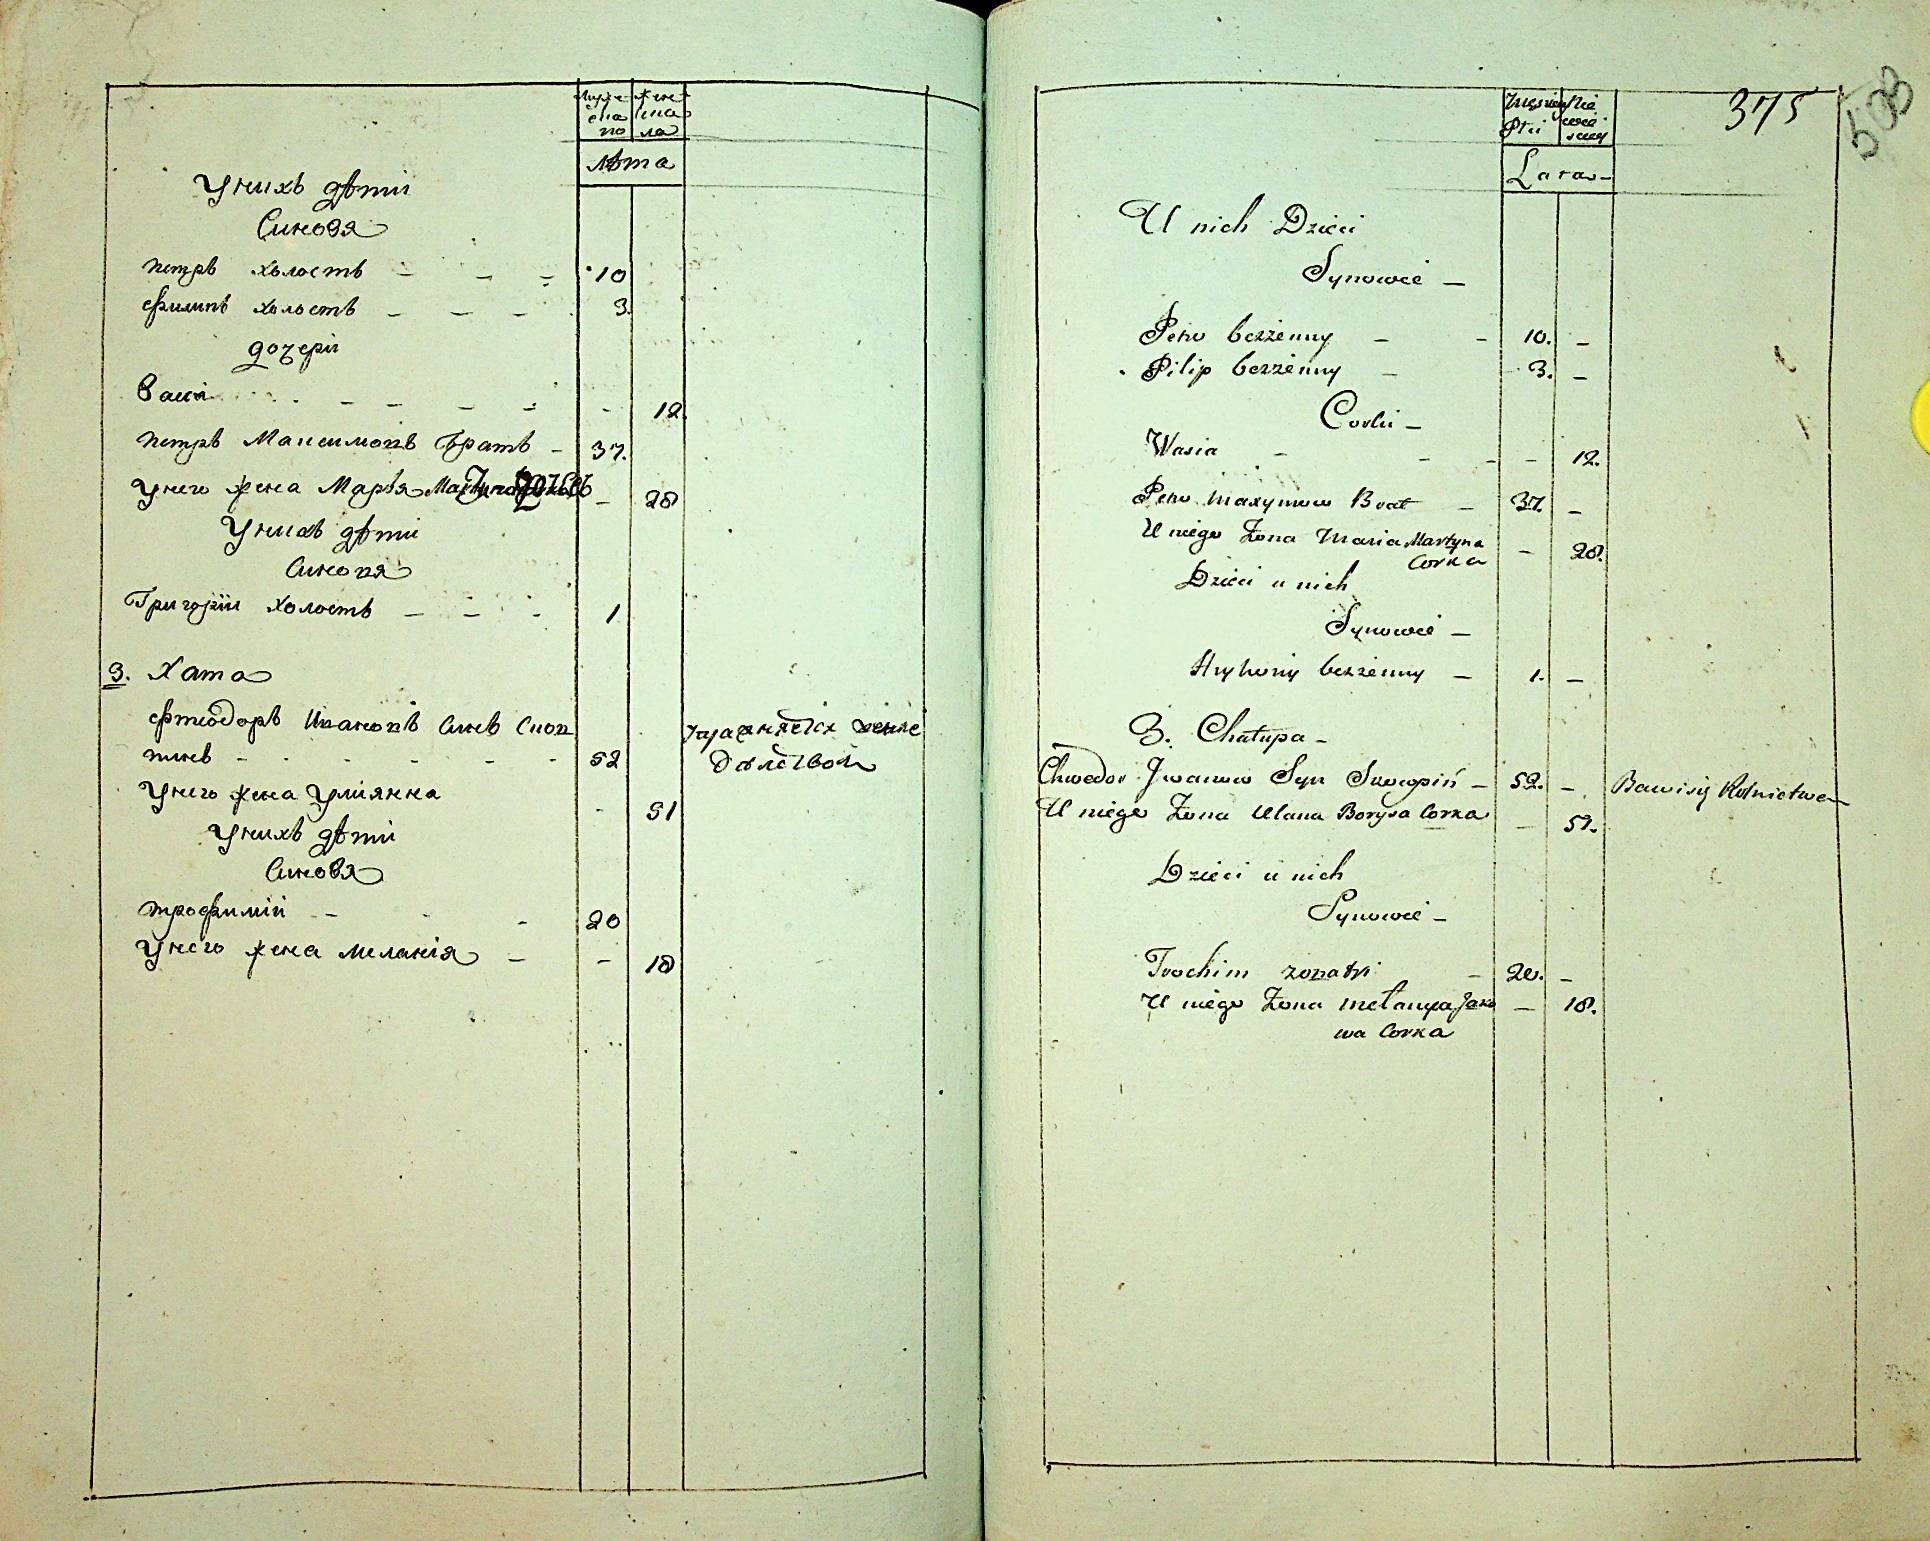 Мужескаго
женска
пола
Лѣта
У нихъ дѣти
Синовя
петръ холостъ - - - 10
филипъ холостъ - - - 3.
дочери
Вася - - - - - 12
петръ Максимовъ братъ - 37.
У него жена Марья Мартинова дочь - 28
У нихъ дѣти
Синовя
Григорiи холостъ - - - 1
3. Хата
фтеодоръ Ивановъ Синъ Скоп
тинъ - - - - - 52 упражняется земле
дѣлством
У него жена Улiянна - 51
У нихъ дѣти
Синовя
трофимiй - - - 20
У него жена Меланiя - - 18
375
508
Lata
U nich Dzieci
Synowie -
Petro bezżenny - - 10. -
Pilip bezżenny - 3. -
Corki -
Wasia - - - - 12.
Petro Maxymow Brat - 37. -
U niego Żona Maria Martyna - 28.
Corka
Dzieci u nich
Synowie -
Hryhoriy bezżenny - 1. -
3. Chałupa -
Chwedor Iwanow Syn - 52. - Bawi się Rolnictwem
U niego Żona Ulana Borysa Corka - 51.
Dzieci u nich
Synowie -
Trochim żonaty - 20. -
U niego Żona Mełanya Jako - 18.
wa Corka